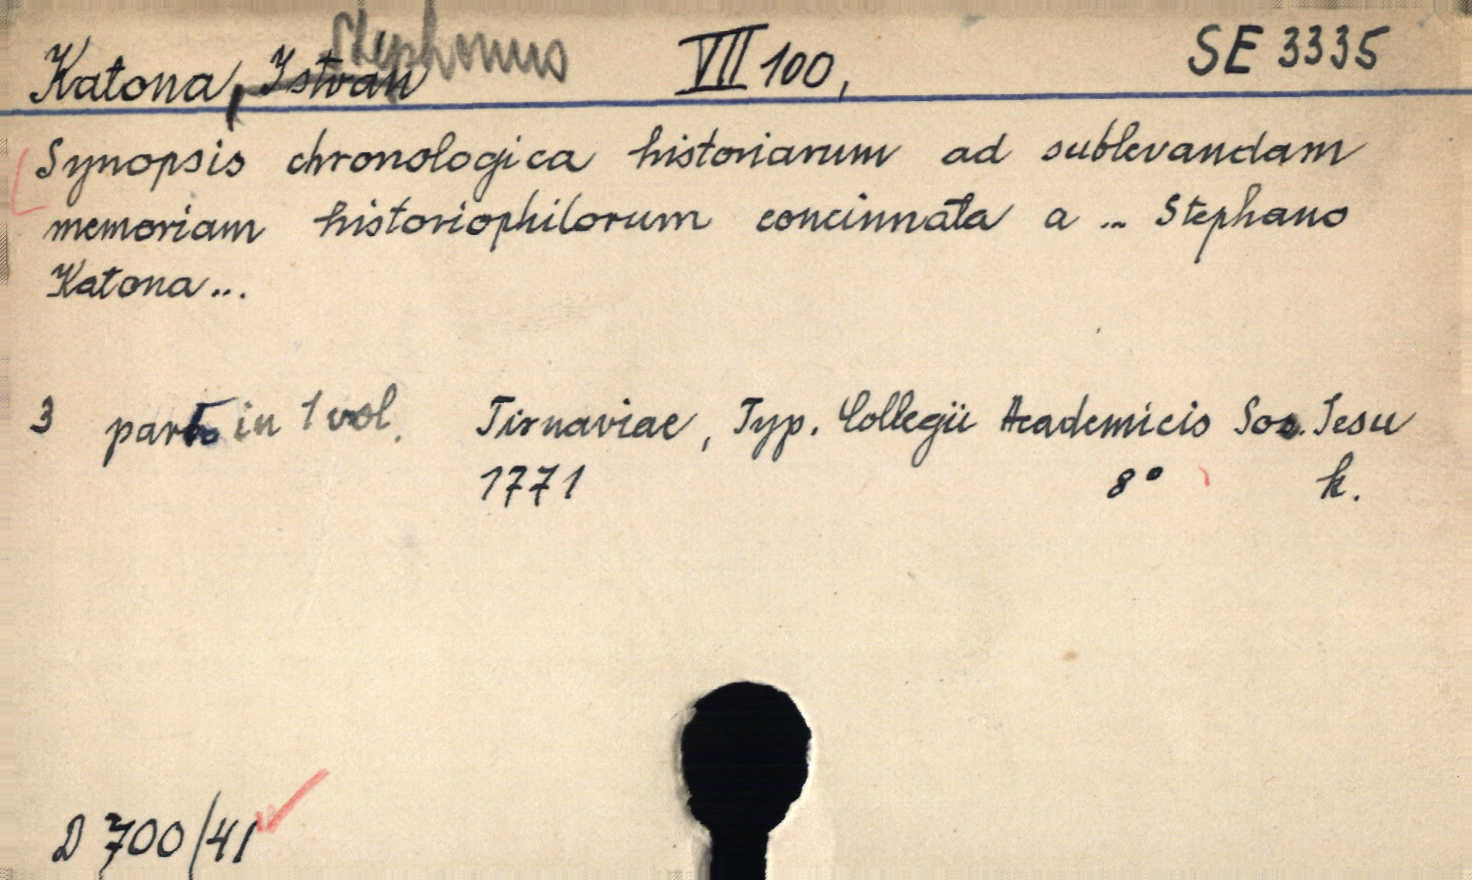 Katona, Istvan Stephanus VII 100, SE 3335
Synopsis chronologica historiarum ad sublevandam
memoriam historiophilorum concinnata a ... Stephano
Katona...
3 part. in 1 vol. Tirnaviae, Typ. Collegii Academicis Soc. Jesu
1771 8° k.
D 700/41